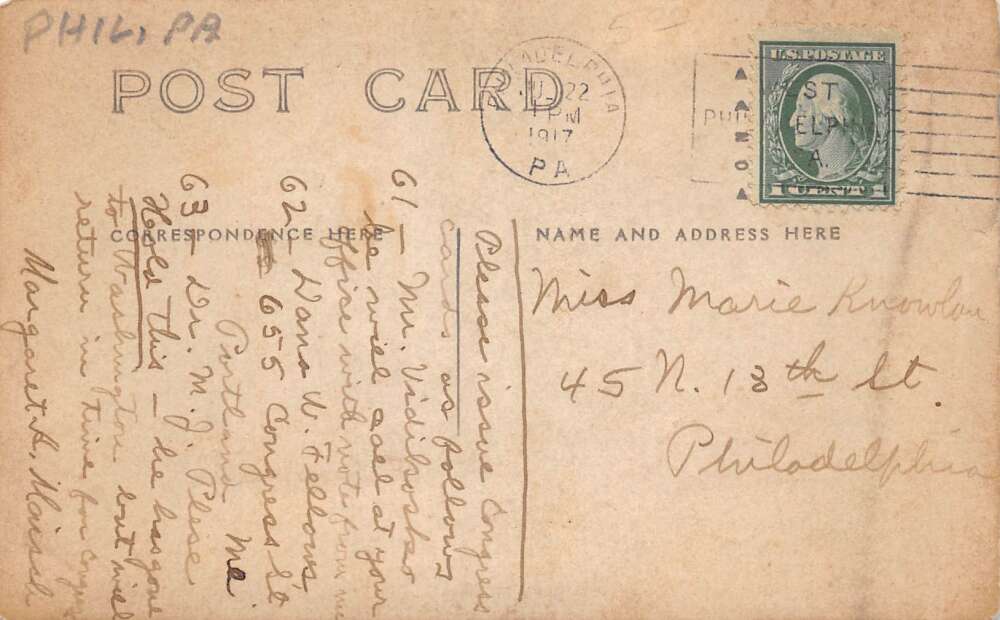 PHIL, PA
POST CARD
PHILADELPHIA
22
1 PM
1917
PA
U.S. POSTAGE
ST
PHIL ELPHI
A.
1 CENT 1
CORRESPONDENCE HERE
NAME AND ADDRESS HERE
Please issue Congress
cards as follows
61 — Mr.
he will call at your
office with note from me
62 — Dana W. Fellows,
655 Congress St
Portland Me
63 — Dr. M. J.
Hold this — he has gone
to Washington but will
return in time for
Margaret A.
Miss Marie
45 N. 13th St.
Philadelphia